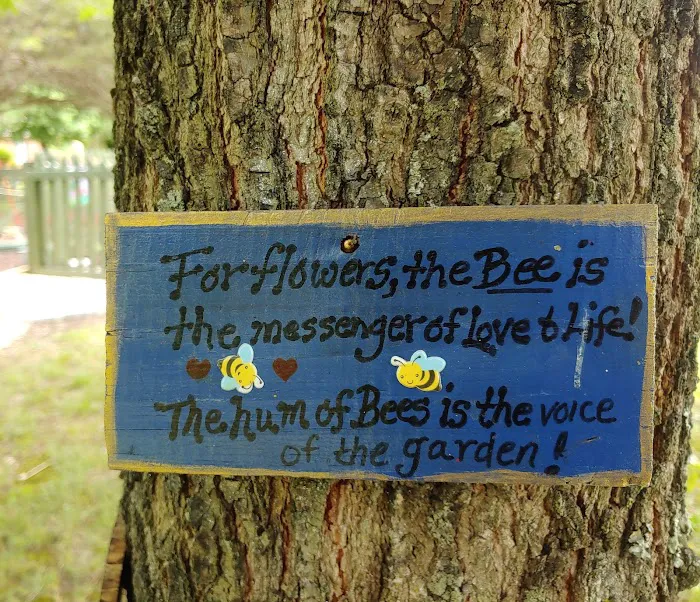 For flowers, the Bee is
the messenger of Love & Life!
The hum of Bees is the voice
of the garden!